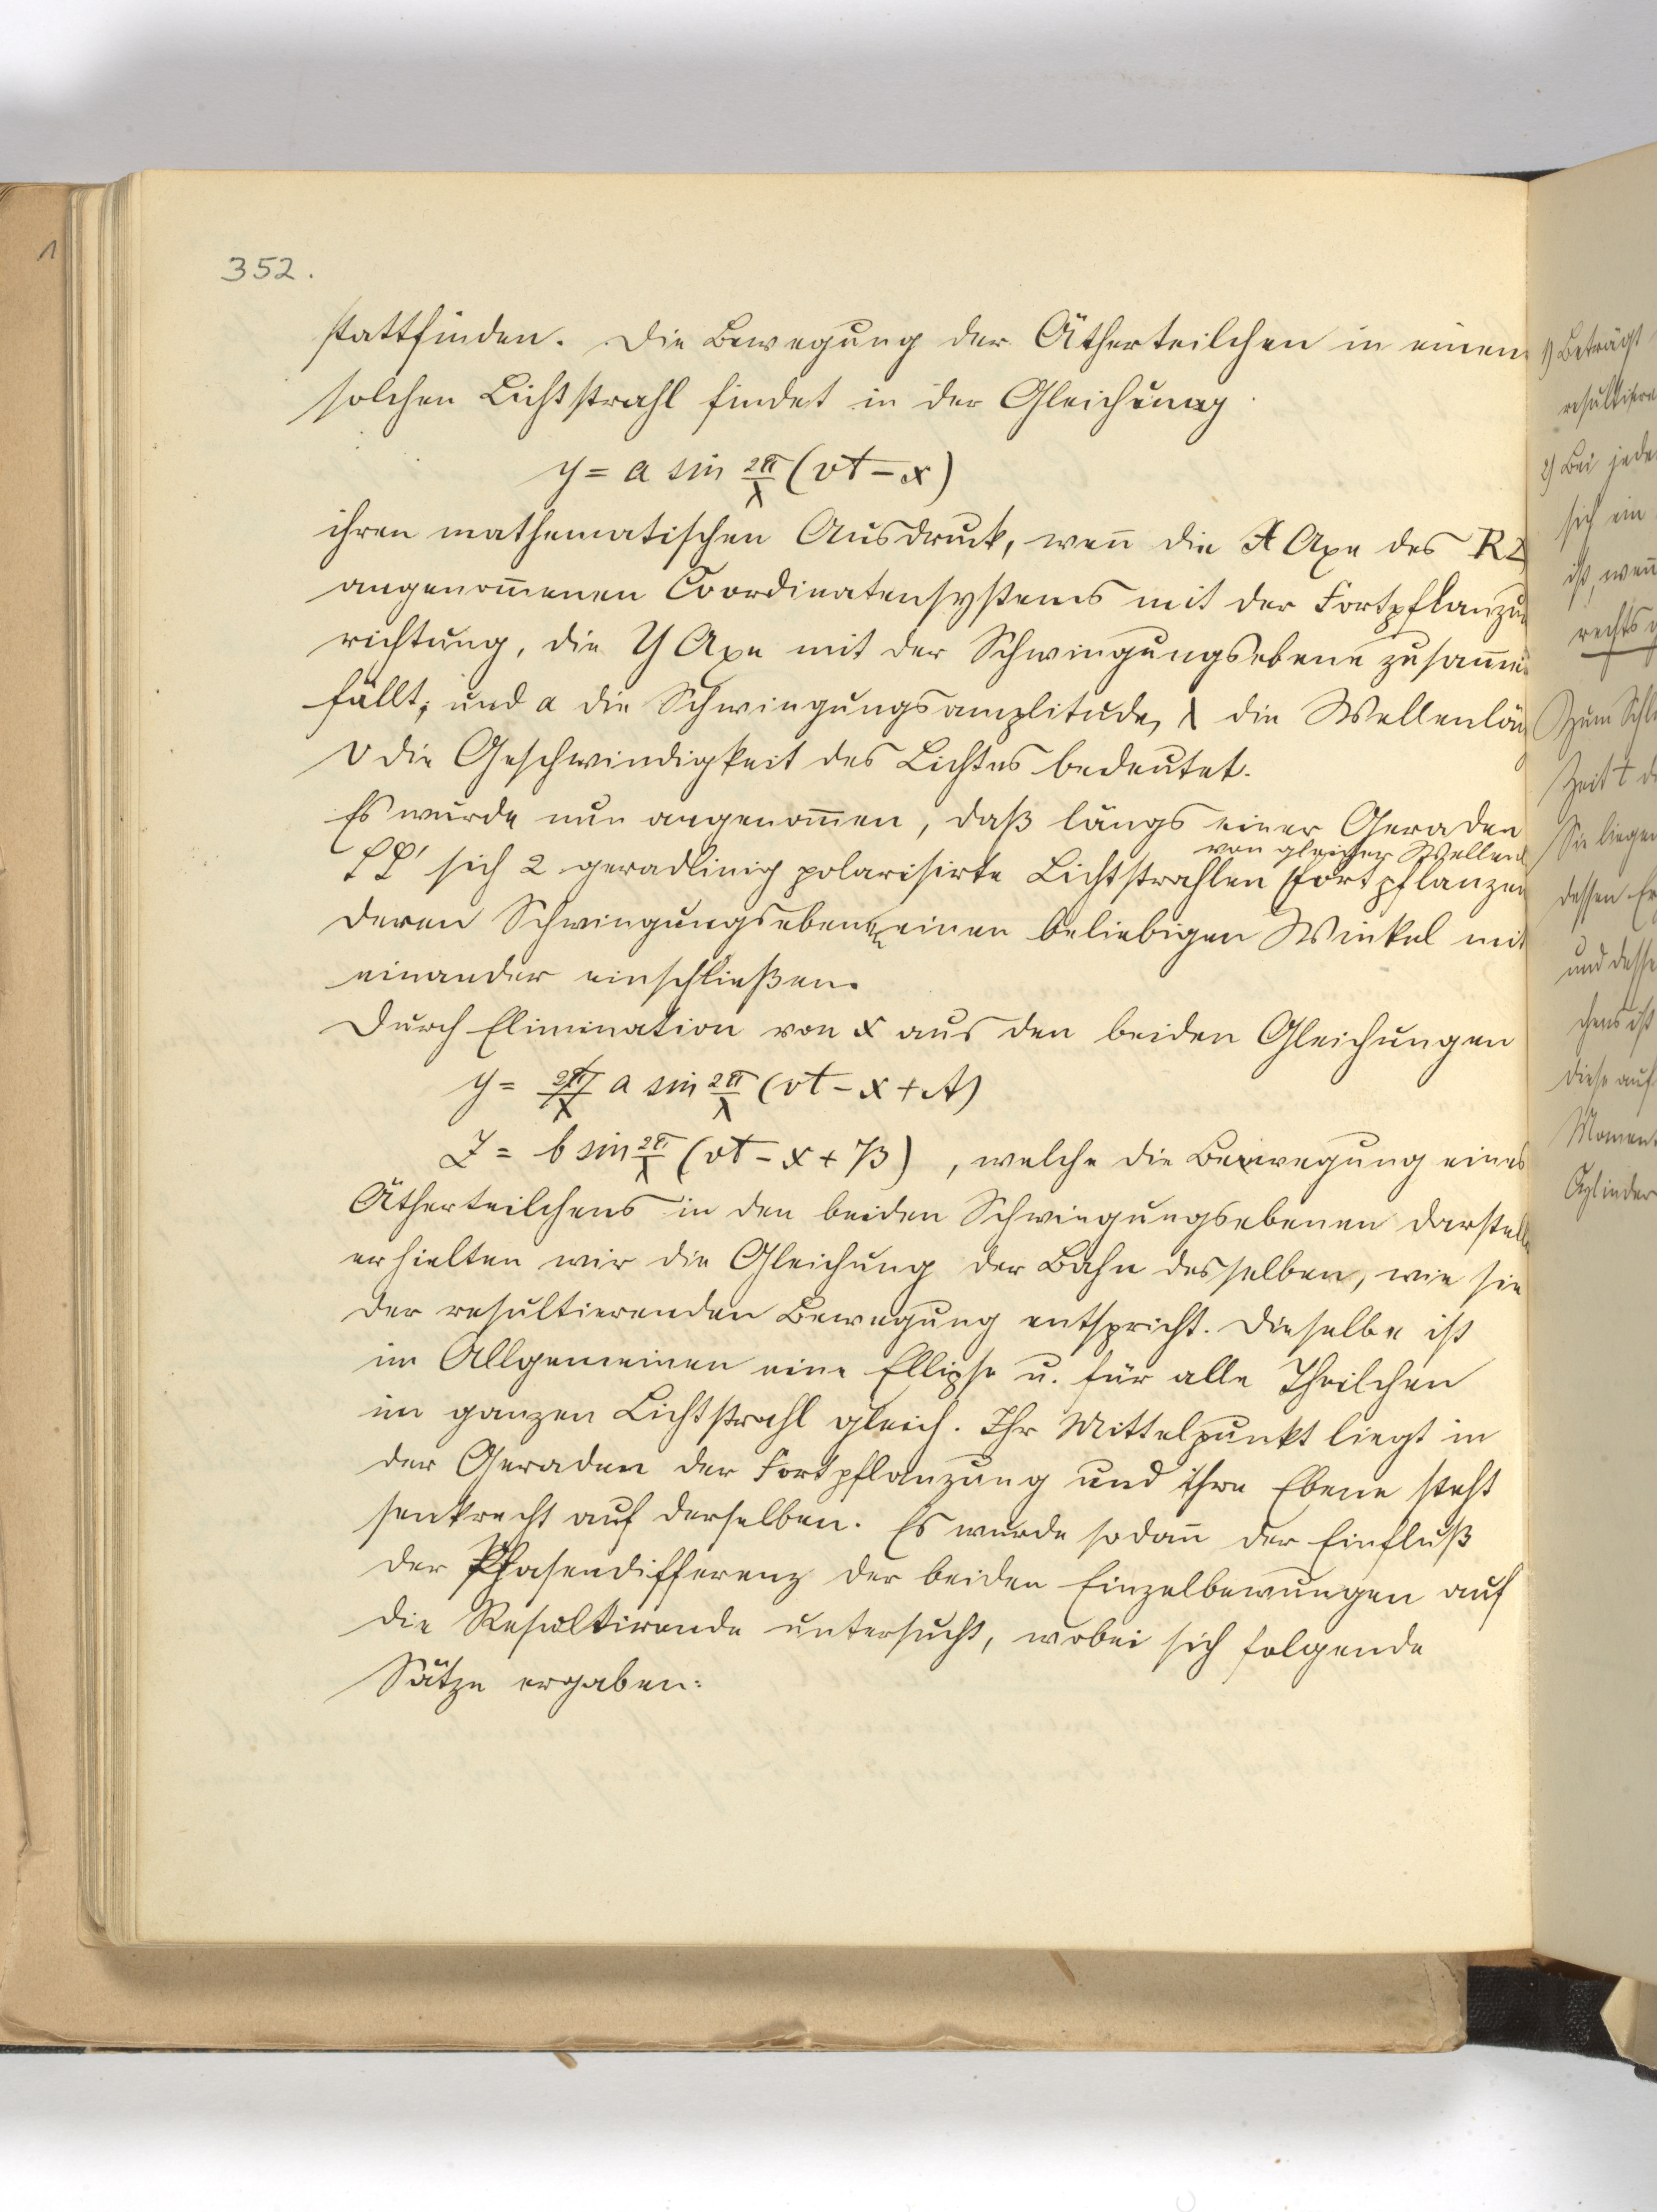 352.
stattfinden. Die Bewegung der Ätherteilchen in einem
solchen Lichtstrahl findet in der Gleichung
y = a sin 2π/λ (vt - x)
ihren mathematischen Ausdruck, wen̄ die X Axe des R∠
angenom̄enen Coordinatensystems mit der Fortpflanzu
richtung, die Y Axe mit der Schwingungsebene zusam̄e
fällt, und a die Schwingungsamplitude, λ die Wellenlän
v die Geschwindigkeit des Lichtes bedeutet.
Es wurde nun angenom̄en, daß längs einer Geraden
von gleicher Wellenl
PP' sich 2 geradlinig polarisirte Lichtstrahlen fortpflanzen
deren Schwingungsebenen einen beliebigen Winkel mit
einander einschließen.
Durch Elimination von x aus den beiden Gleichungen
y = a sin 2π/λ (vt - x + A)
Z = b sin 2π/λ (vt - x + B) , welche die Bewegung eines
Ätherteilchens in den beiden Schwingungsebenen darstell
erhielten wir die Gleichung der Bahn desselben, wie sie
der resultierenden Bewegung entspricht. Dieselbe ist
im Allgemeinen eine Ellipse u. für alle Theilchen
im ganzen Lichtstrahl gleich. Ihr Mittelpunkt liegt in
der Geraden der Fortpflanzung und ihre Ebene steht
senkrecht auf derselben. Es wurde sodan̄ der Einfluß
der Phasendifferenz der beiden Einzelbewungen auf
die Resultirende untersucht, wobei sich folgende
Sätze ergaben:
1) Beträgt
2) Bei jede
sich ein
ist, wen̄
rechts
Zum Schl
Zeit t d
Sie liegen
dessen Er
und desse
chens ist
diese auf
Moment
Cylinder